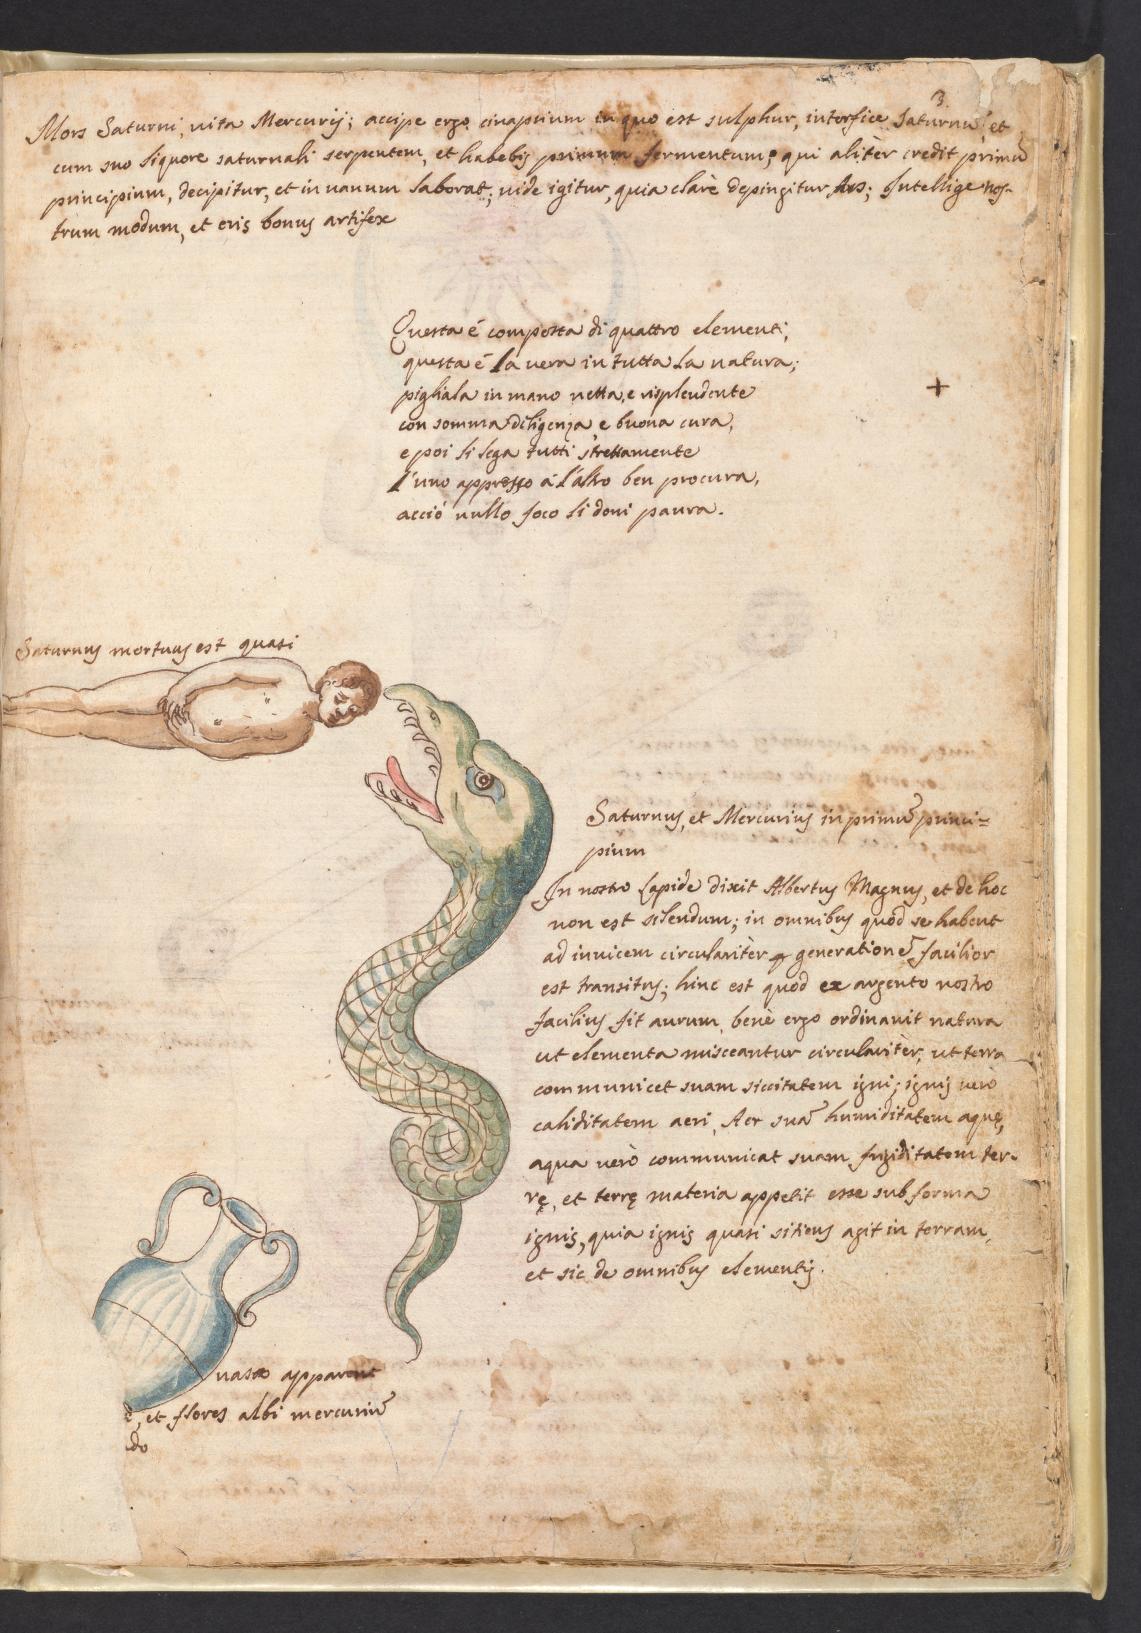 3.
Mors Saturni, uita Mercurij; accipe ergo cinaprium in quo est sulphur, interfice Saturnũ, et
cum suo liquore saturnali serpentem, et habebis primum fermentum; qui alitèr credit primũ
principium, decipitur, et in uanum laborat; uide igitur, quia clarè depingitur Ars; Intellige nos-
trum modum, et eris bonus artifex
Questa é composta di quattro elementi;
questa é la uera in tutta la natura;
pigliala in mano netta, e risplendente
con somma diligenza, e buona cura,
e poi li lega tutti strettamente
l'uno appresso á l'altro ben procura,
acció nullo foco li doni paura.
+
Saturnus mortuus est quasi
Saturnus, et Mercurius in primũ princi=
pium
In nostro Lapide dixit Albertus Magnus, et de hoc
non est silendum; in omnibus quod se habent
ad inuicem circularitèr generationẽ, facilior
est transitus; hinc est quod ex argento nostro
facilius fit aurum, benè ergo ordinauit natura
ut elementa misceantur circularitèr, ut terra
communicet suam siccitatem igni; ignis uerò
caliditatem aeri, Aer suã humiditatem aquę,
aqua uerò communicat suam frigiditatem ter-
rę, et terrę materia appetit esse sub forma
ignis, quia ignis quasi sitiens agit in terram,
et sic de omnibus elementis.
uasa apparent
et flores albi mercuriũ
do